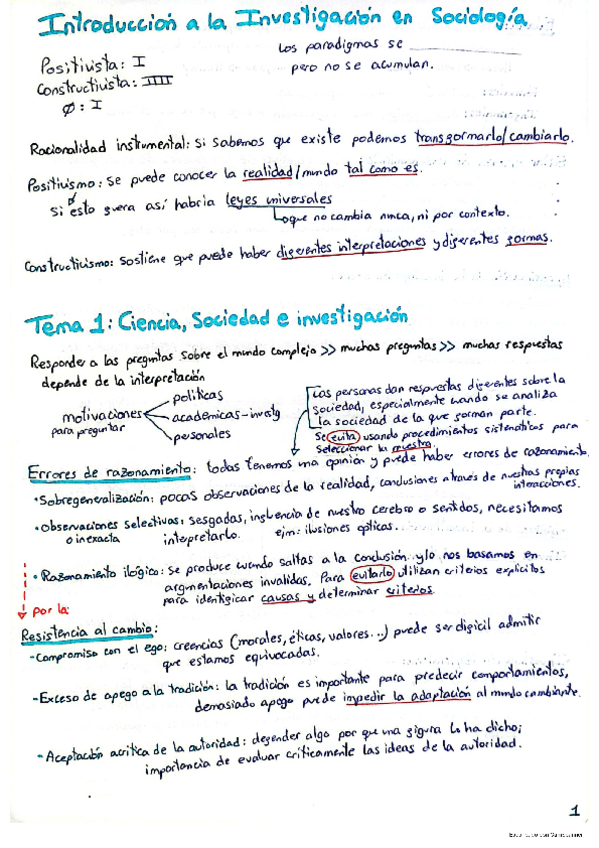 Introduccion a la Investigación en Sociología
Los paradigmas se ____________
pero no se acumulan.
Positivista: I
Constructivista: IIII
Ø: I
Racionalidad instrumental: si sabemos que existe podemos transformarlo/cambiarlo.
Positivismo: se puede conocer la realidad/mundo tal como es.
si esto fuera así habría leyes universales
que no cambia nunca, ni por contexto.
Constructivismo: sostiene que puede haber diferentes interpretaciones y diferentes formas.
Tema 1: Ciencia, Sociedad e investigación
Responder a las preguntas sobre el mundo complejo >> muchas preguntas >> muchas respuestas
depende de la interpretación
motivaciones
para preguntar
políticas
académicas-investg
personales
Las personas dan respuestas diferentes sobre la
sociedad, especialmente cuando se analiza
la sociedad de la que forman parte.
Se evita usando procedimientos sistemáticos para
seleccionar la muestra.
Errores de razonamiento: todas tenemos una opinión y puede haber errores de razonamiento.
•Sobregeneralización: pocas observaciones de la realidad, conclusiones a través de nuestras propias
interacciones.
•Observaciones selectivas: sesgadas, influencia de nuestro cerebro o sentidos, necesitamos
o inexacta interpretarlo. ejm: ilusiones ópticas.
• Razonamiento ilógico: se produce cuando saltas a la conclusión y/o nos basamos en
argumentaciones invalidas. Para evitarlo utilizan criterios explícitos
para identificar causas y determinar criterios.
por la:
Resistencia al cambio:
-Compromiso con el ego: creencias (morales, éticas, valores...) puede ser difícil admitir
que estamos equivocadas.
-Exceso de apego a la tradición: la tradición es importante para predecir comportamientos,
demasiado apego puede impedir la adaptación al mundo cambiante.
-Aceptación acrítica de la autoridad: defender algo por que una figura lo ha dicho;
importancia de evaluar críticamente las ideas de la autoridad.
1